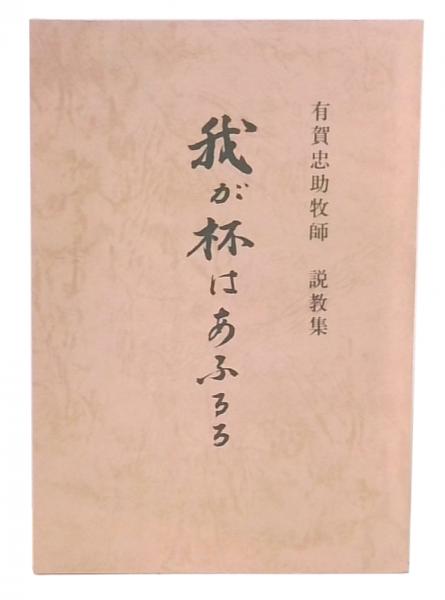 有賀忠助牧師 説教集
我が杯はあふるる